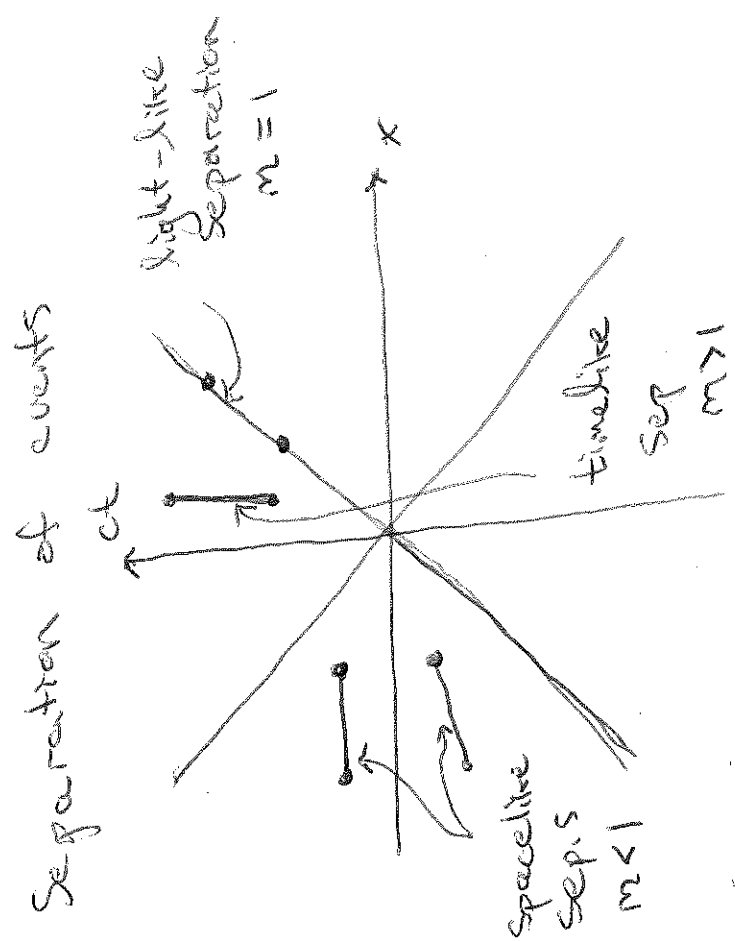 Separation of events
ct
light-like
separation
m = 1
x
timelike
sep
m > 1
spacelike
sep's
m < 1